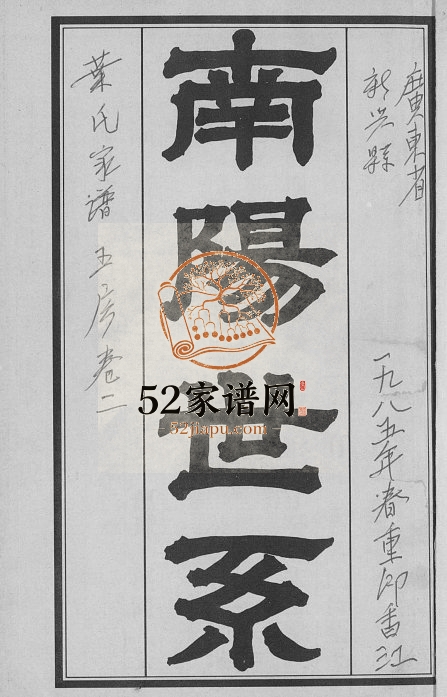 廣東省
新兴縣
一九八五年春重印香江
南陽世系
葉氏家谱 五房卷二
52家谱网
52jiapu.com